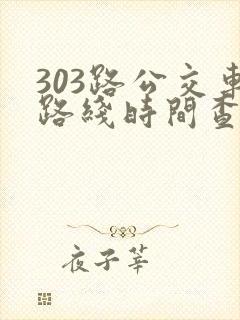 303路公交車
路綫時間查
夜子莘